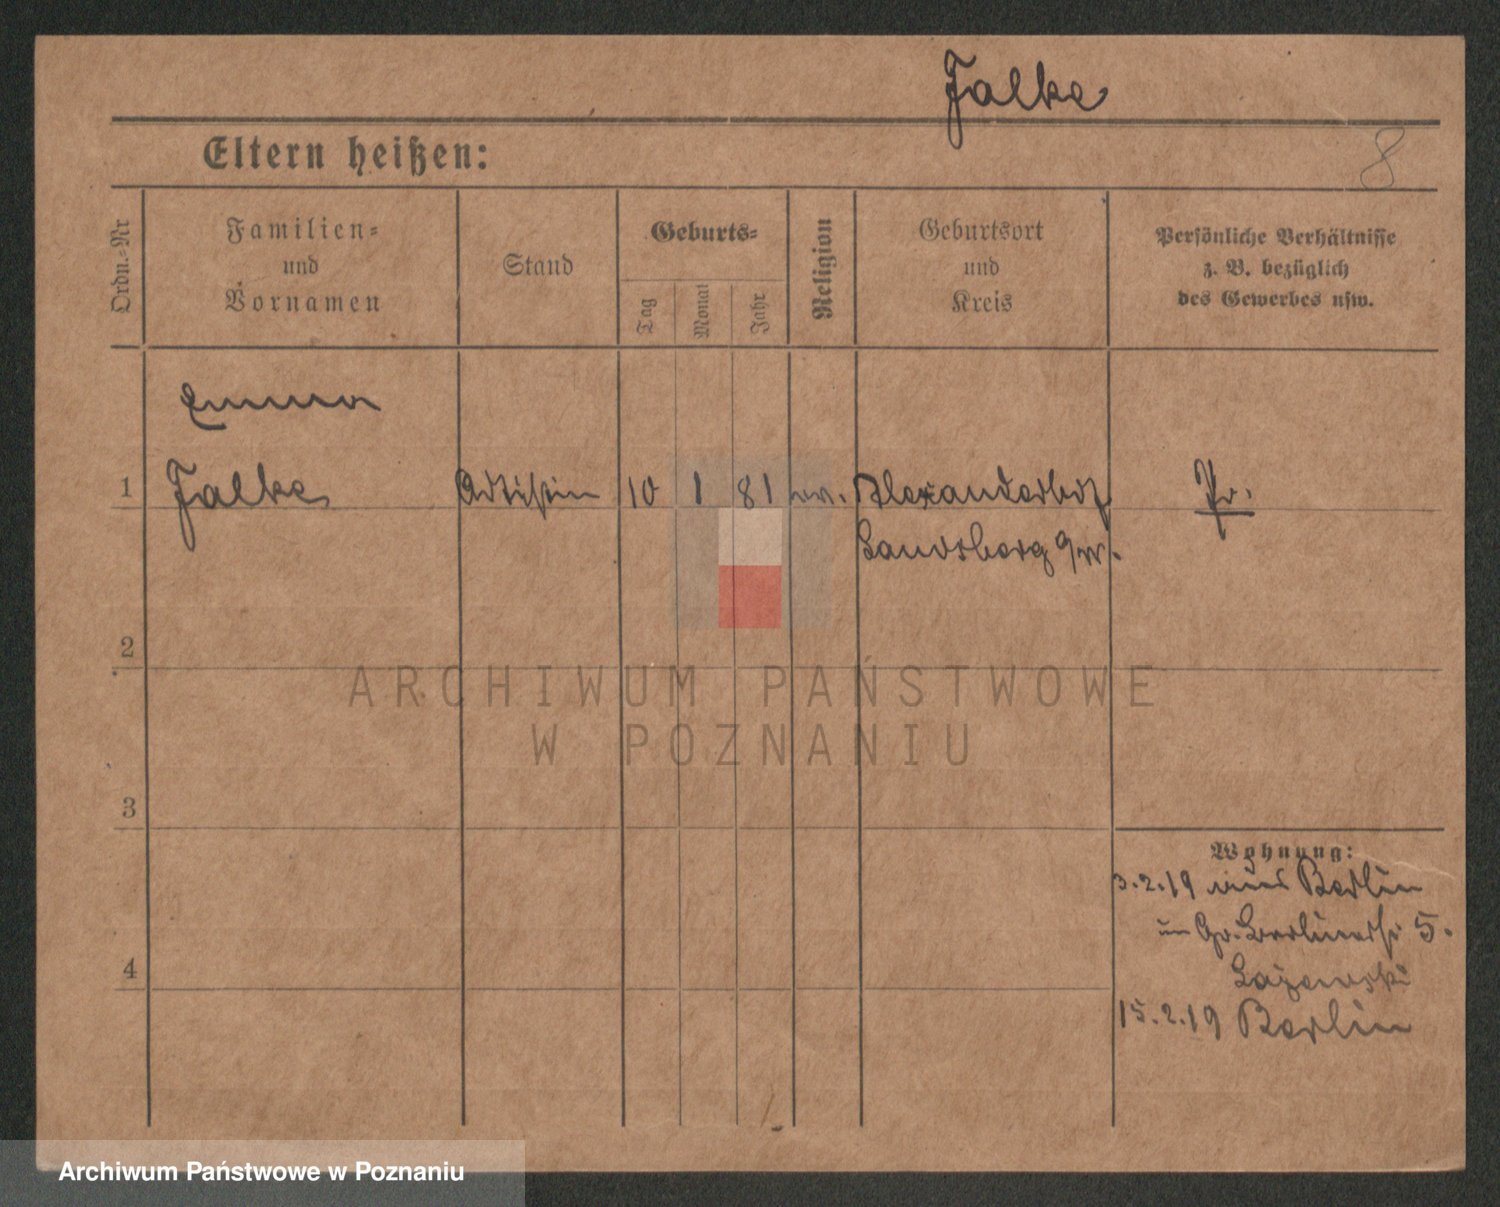 Falke
Eltern heißen:
8
Ordn.-Nr
Familien-
und
Vornamen
Stand
Geburts-
Tag
Monat
Jahr
Religion
Geburtsort
und
Kreis
Persönliche Verhältnisse
z. B. bezüglich
des Gewerbes usw.
Emma
1 Falke Artistin 10 1 81 ev. Alexanderhof Pr.
Landsberg a/W.
2
ARCHIWUM PAŃSTWOWE
W POZNANIU
3
Wohnung:
3.2.19 aus Berlin
Gr. Berlinerstr 5.
4
15.2.19 Berlin
Archiwum Państwowe w Poznaniu